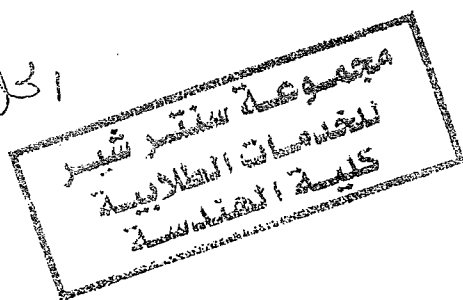 الحل
مجموعة سنتر شير
للخدمات الطلابية
كلية الهندسة